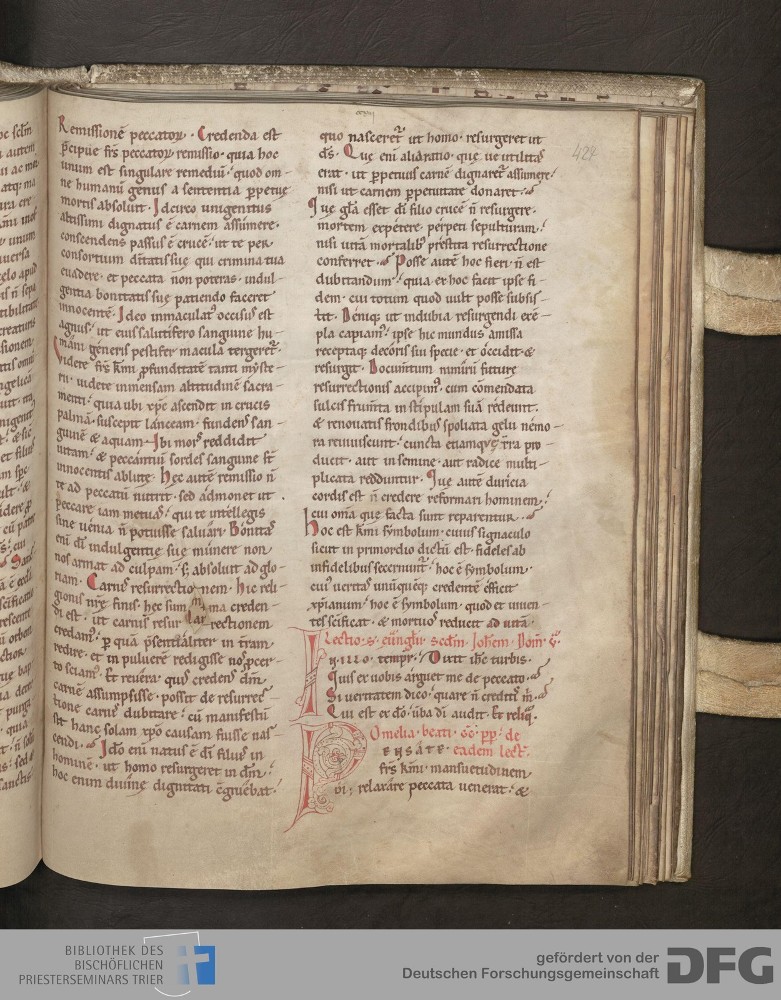 Remissionē peccatoꝝ. Credenda est
p̄cipue frs̄ peccatoꝝ remissio. quia hoc
unum est singulare remediū. quod om-
ne humanū genus a sententia ꝑpetuę
mortis absoluit. Idcirco unigenitus
altissimi dignatus ē carnem assumere.
conscendens passus ē crucē. ut te per
consortium diuītatis suę qui crimina tua
euadere. et peccata non poteras. indul-
gentia bonitatis suę patiendo faceret
innocentē. Ideo immaculatꝰ occisus est
agnus. ut eius salutifero sanguine hu-
mani generis pestifer macula tergeret̄.
Videte frs̄ km̄i ꝓfunditatē tanti myste-
rii. uidete inmensam altitudinē sacra-
menti. quia ubi xp̄c ascendit in crucis
palmā. suscepit lanceam. fundens san-
guinē & aquam. Ibi mors reddidit
uitam. & peccantiū sordes sanguine st̄
innocentis ablutę. Hęc autē remissio n̄
te ad peccatū nutrit. sed admonet ut
peccare iam metuas. qui te intellegis
sine uenia n̄ potuisse saluari. Bonitas
eni di indulgentię suę munere non
nos armat ad culpam. s; absoluit ad glo-
riam. Carnis resurrectionem. Hic reli-
gionis nrę finis. hęc summa creden-
di est. ut carnis resurrectionem
credam. ꝑ quā p̄sentialiter in t̄ram
redire. et in puluerē redigisse nos ꝑcer-
to sciam. Et reuera quis credens dm̄
carnē assumpsisse. possit de resurrec-
tione carnis dubitare. cū manifestū
sit hanc solam xpō causam fuisse nas-
cendi. Ido eni natus ē di filius in
hominē. ut homo resurgeret in dm̄.
hoc enim diuinę dignitati c̄gruebat.
quo nasceret̄ ut homo. resurgeret ut
ds̄. Quę eni alia ratio. quę ue utilitas
erat. ut ꝑpetuus carnē dignaret̄ assumere.
nisi ut carnem ꝑpetuitate donaret.
Quę gła esset di filio crucē n̄ resurgere.
mortem expetere. perpeti sepulturam.
nisi uitā mortalibꝰ prestita resurrectione
conferret. Posse autē hoc fieri n̄ est
dubitandum. quia ex hoc facit ipse fi-
dem. cui totum quod uult posse subsis-
tit. Deniqꝫ ut indubia resurgendi exē-
pla capiam. ipse hic mundus amissa
receptaqꝫ decoris sui specie. et occidit &
resurgit. Documtum nimirū futurę
resurrectionis accipim. cum cōmendata
sulcis frumta in stipulam suā redeunt.
& renouatis frondibus spoliata gelu nemo-
ra reuiuiscunt. cuncta etiamquę t̄ra pro-
ducit. aut in semine. aut radice multi-
plicata redduntur. Quę autē duricia
cordis est n̄ credere reformari hominem.
cui om̄ia quę facta sunt reparentur.
Hoc est km̄i symbolum. cuius signaculo
sicut in primordio dictū est. fideles ab
infidelibus secernunt̄. hoc ē symbolum.
cuiꝰ ueritas unūquēqꝫ credentē efficit
xp̄ianum. hoc ē symbolum. quod et uiuen-
tes scificat. & mortuos reducit ad uitā.
Lectio. s. eūnglii. scdm. Ioh̄em. Dom̄. v̄.
In illo tempr̄. Dixit ih̄c turbis.
Quis ex uobis arguet me de peccato.
Si ueritatem dico. quare n̄ creditis m̄.
Qui est ex dō. ūba di audit. Et reliq̄.
Omelia. beati. gg. pp. de
eadem lect̄.
frs̄ km̄i. mansuetudinem
relaxare peccata uenerat. &
424
BIBLIOTHEK DES
BISCHÖFLICHEN
PRIESTERSEMINARS TRIER
gefördert von der
Deutschen Forschungsgemeinschaft
DFG